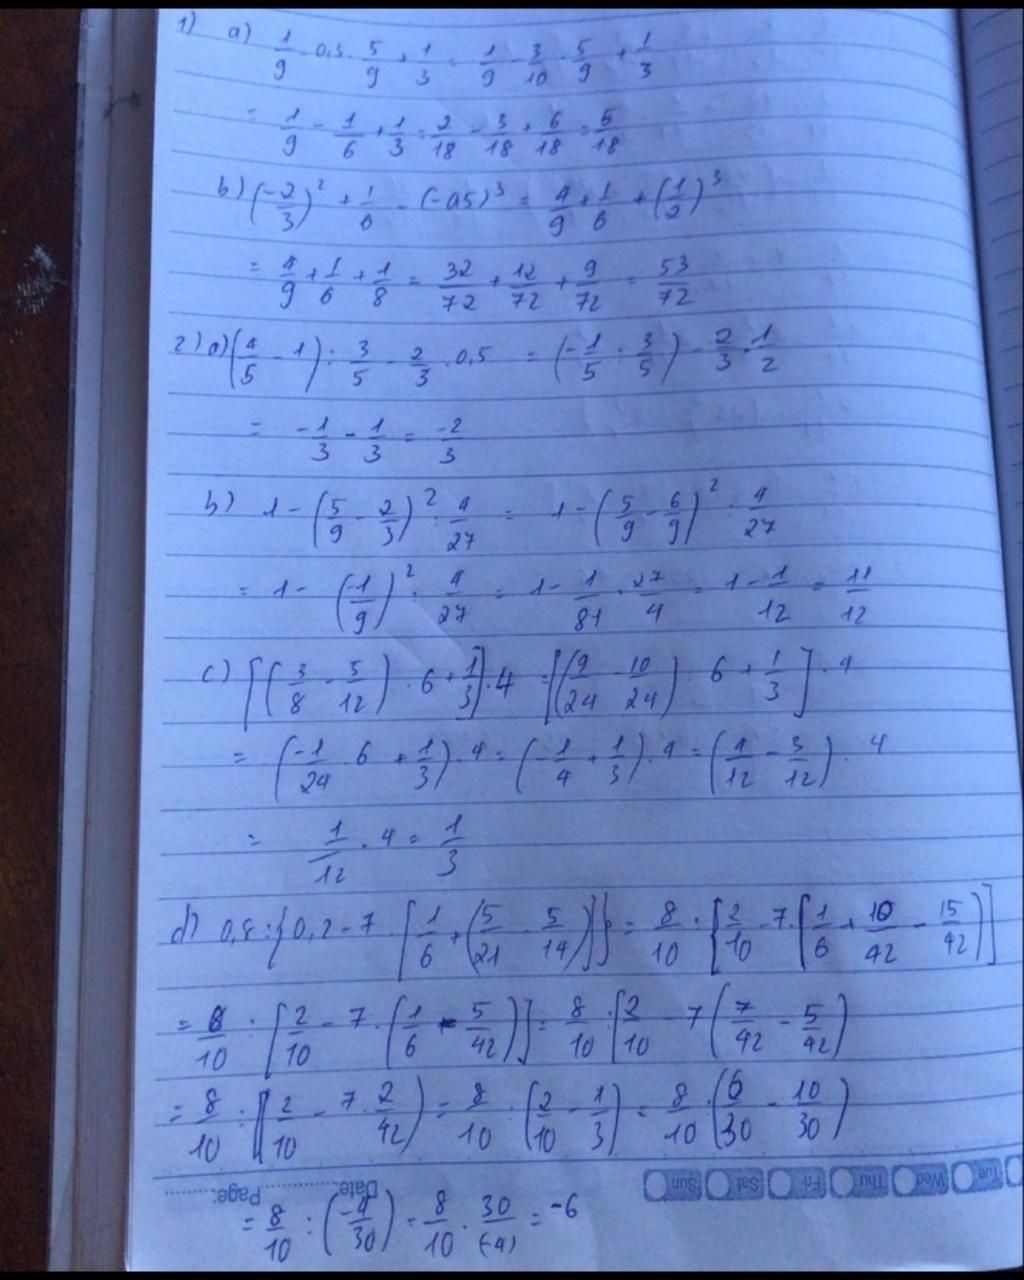 1) a) 1/9 - 0,3 · 5/9 + 1/3 = 1/9 - 3/10 · 5/9 + 1/3
= 1/9 - 1/6 + 1/3 = 2/18 - 3/18 + 6/18 = 5/18
b) (-2/3)² + 1/6 - (-0,5)³ = 4/9 + 1/6 + (1/2)³
= 4/9 + 1/6 + 1/8 = 32/72 + 12/72 + 9/72 = 53/72
2) a) (4/5 - 1) : 3/5 - 2/3 · 0,5 = (-1/5 : 3/5) - 2/3 · 1/2
= -1/3 - 1/3 = -2/3
b) 1 - (5/9 - 2/3)² : 4/27 = 1 - (5/9 - 6/9)² : 4/27
= 1 - (-1/9)² : 4/27 = 1 - 1/81 · 27/4 = 1 - 1/12 = 11/12
c) [(3/8 - 5/12) · 6 + 1/3] · 4 = [(9/24 - 10/24) · 6 + 1/3] · 4
= (-1/24 · 6 + 1/3) · 4 = (-1/4 + 1/3) · 4 = (4/12 - 3/12) · 4
= 1/12 · 4 = 1/3
d) 0,8 : {0,2 - 7 · [1/6 + (5/21 - 5/14)]} = 8/10 : [2/10 - 7 · [1/6 + 10/42 - 15/42)]
= 8/10 : [2/10 - 7 · (1/6 - 5/42)] = 8/10 : [2/10 - 7 (7/42 - 5/42)
= 8/10 : [(2/10 - 7 · 2/42) = 8/10 : (2/10 - 1/3) = 8/10 : (6/30 - 10/30)
Page: Date: Sun Sat Fri Thu Wed Tue
= 8/10 : (-4/30) = 8/10 · 30/(-4) = -6